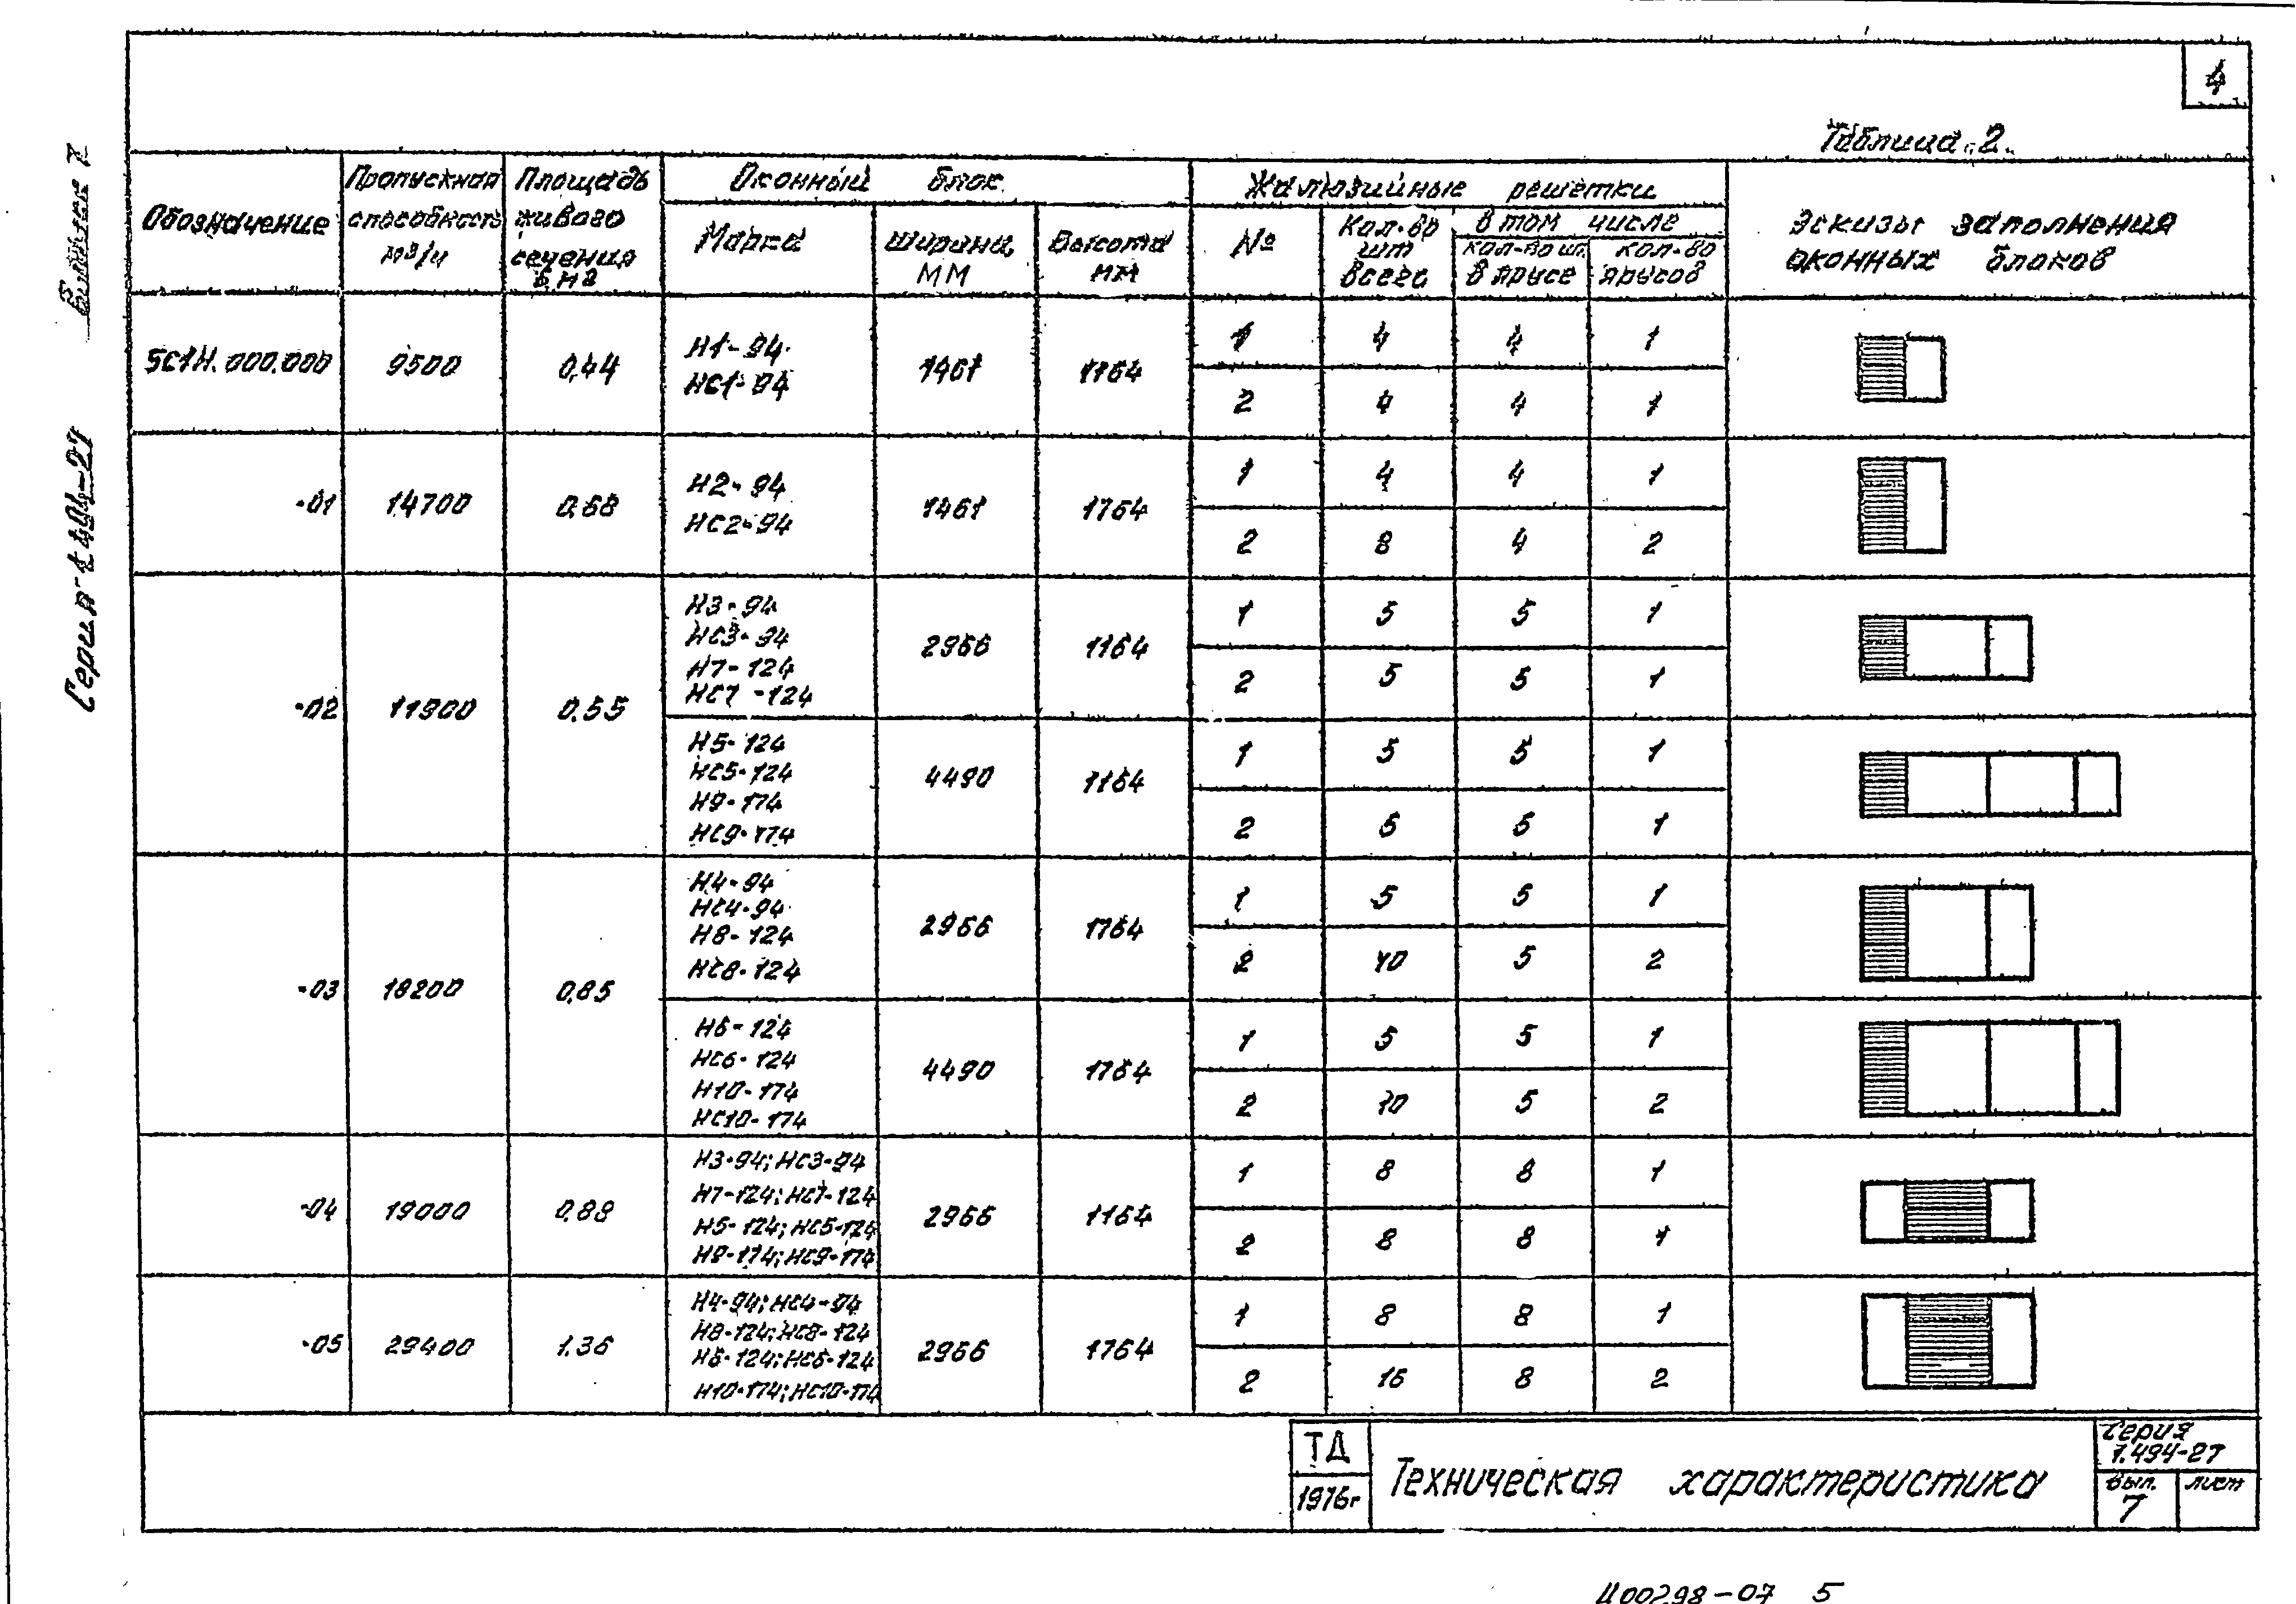 4
Таблица 2.
Выпуск 7
Серия 1.494-27
Обозначение
Пропускная способность м3/ч
Площадь живого сечения в м2
Оконный блок
Марка
Ширина, мм
Высота мм
Жалюзийные решетки
№
Кол-во шт всего
в том числе
кол-во шт. в ярусе
кол-во ярусов
Эскизы заполнения оконных блоков
5С1Н.000.000 9500 0,44 Н1-94 НС1-94 1461 1164
1 4 4 1
2 4 4 1
-01 14700 0,68 Н2-94 НС2-94 1461 1764
1 4 4 1
2 8 4 2
-02 11900 0,55
Н3-94 НС3-94 Н7-124 НС7-124 2966 1164
1 5 5 1
2 5 5 1
Н5-124 НС5-124 Н9-174 НС9-174 4490 1164
1 5 5 1
2 5 5 1
-03 18200 0,85
Н4-94 НС4-94 Н8-124 НС8-124 2966 1764
1 5 5 1
2 10 5 2
Н6-124 НС6-124 Н10-174 НС10-174 4490 1764
1 5 5 1
2 10 5 2
-04 19000 0,88
Н3-94; НС3-94
Н7-124; НС7-124
Н5-124; НС5-124
Н9-174; НС9-174
2966 1164
1 8 8 1
2 8 8 1
-05 29400 1.36
Н4-94; НС4-94
Н8-124; НС8-124
Н6-124; НС6-124
Н10-174; НС10-174
2966 1764
1 8 8 1
2 16 8 2
ТД
1976г
Техническая характеристика
Серия
1.494-27
Вып.
7
лист
Ц00298-07 5